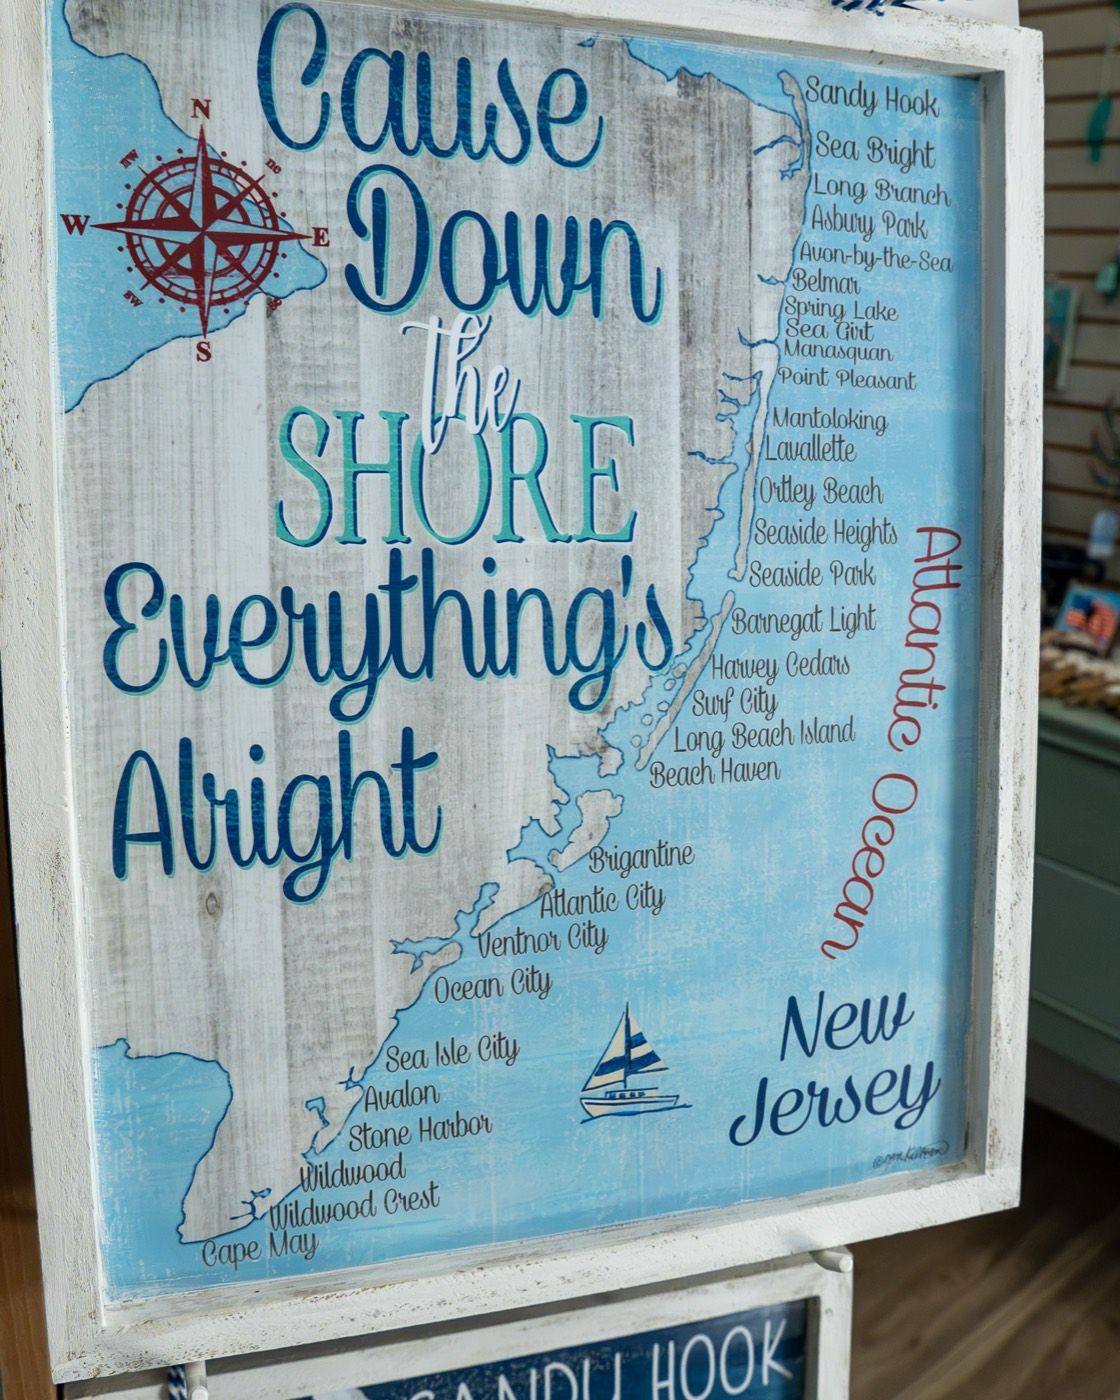 Cause
Down
the
SHORE
Everything's
Alright
N
nw
ne
W
E
sw
S
Sandy Hook
Sea Bright
Long Branch
Asbury Park
Avon-by-the-Sea
Belmar
Spring Lake
Sea Girt
Manasquan
Point Pleasant
Mantoloking
Lavallette
Ortley Beach
Seaside Heights
Seaside Park
Barnegat Light
Harvey Cedars
Surf City
Long Beach Island
Beach Haven
Brigantine
Atlantic City
Ventnor City
Ocean City
Sea Isle City
Avalon
Stone Harbor
Wildwood
Wildwood Crest
Cape May
Atlantic Ocean
New
Jersey
SANDY HOOK